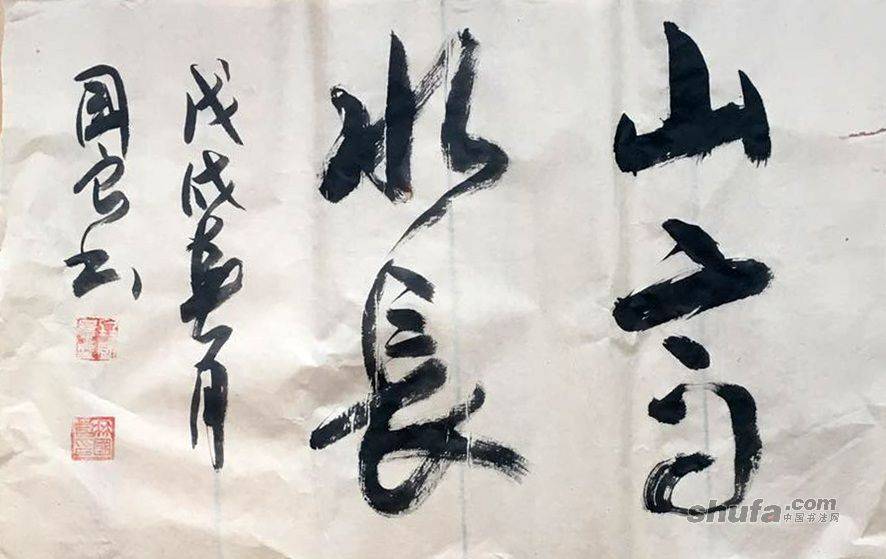 山高
水長
戊戌春月
国良书
shufa.com
中国书法网